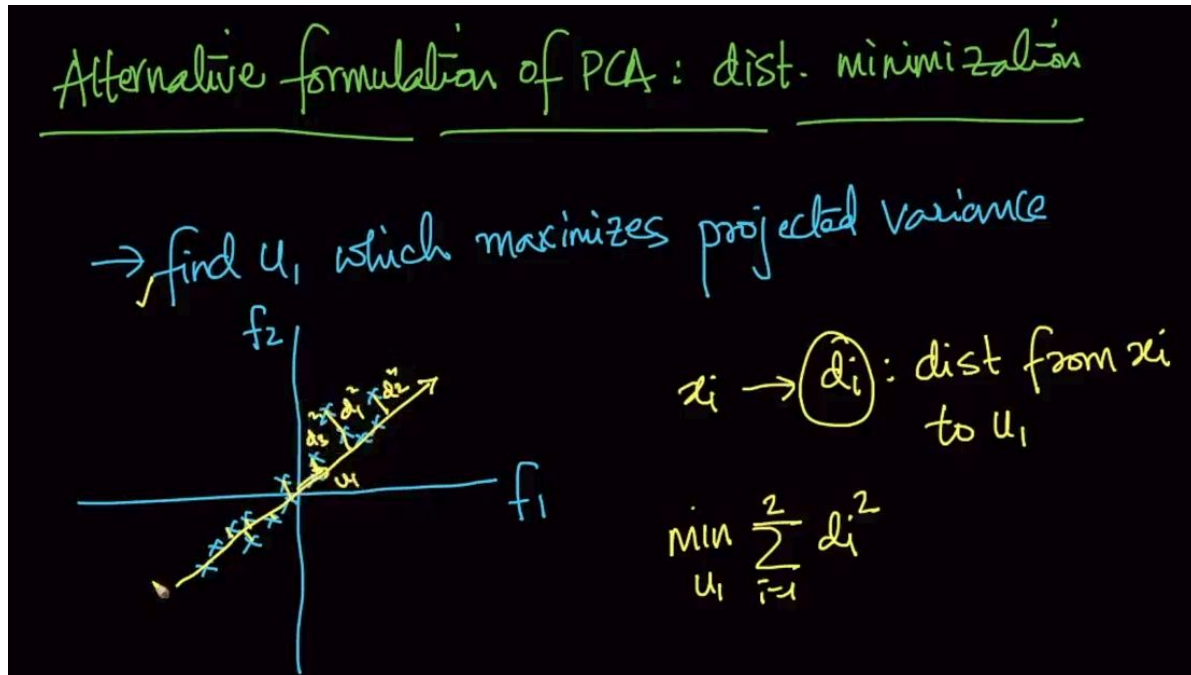 Alternative formulation of PCA: dist. minimization
→ find u₁ which maximizes projected variance
f₂
d₃ d₁ d₂
u₁
f₁
xᵢ → dᵢ : dist from xᵢ
to u₁
min Σ dᵢ²
u₁ i=1 2